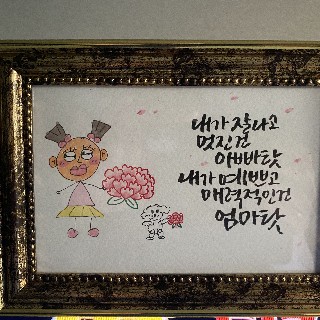 내가 잘나고
멋진건
아빠탓
내가 예쁘고
매력적인건
엄마탓